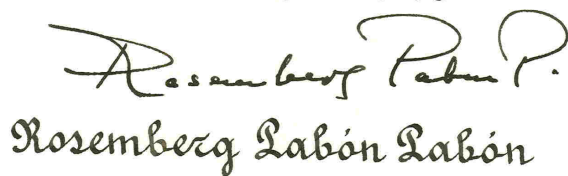 Rosemberg Pabon P.
Rosemberg Pabón Pabón